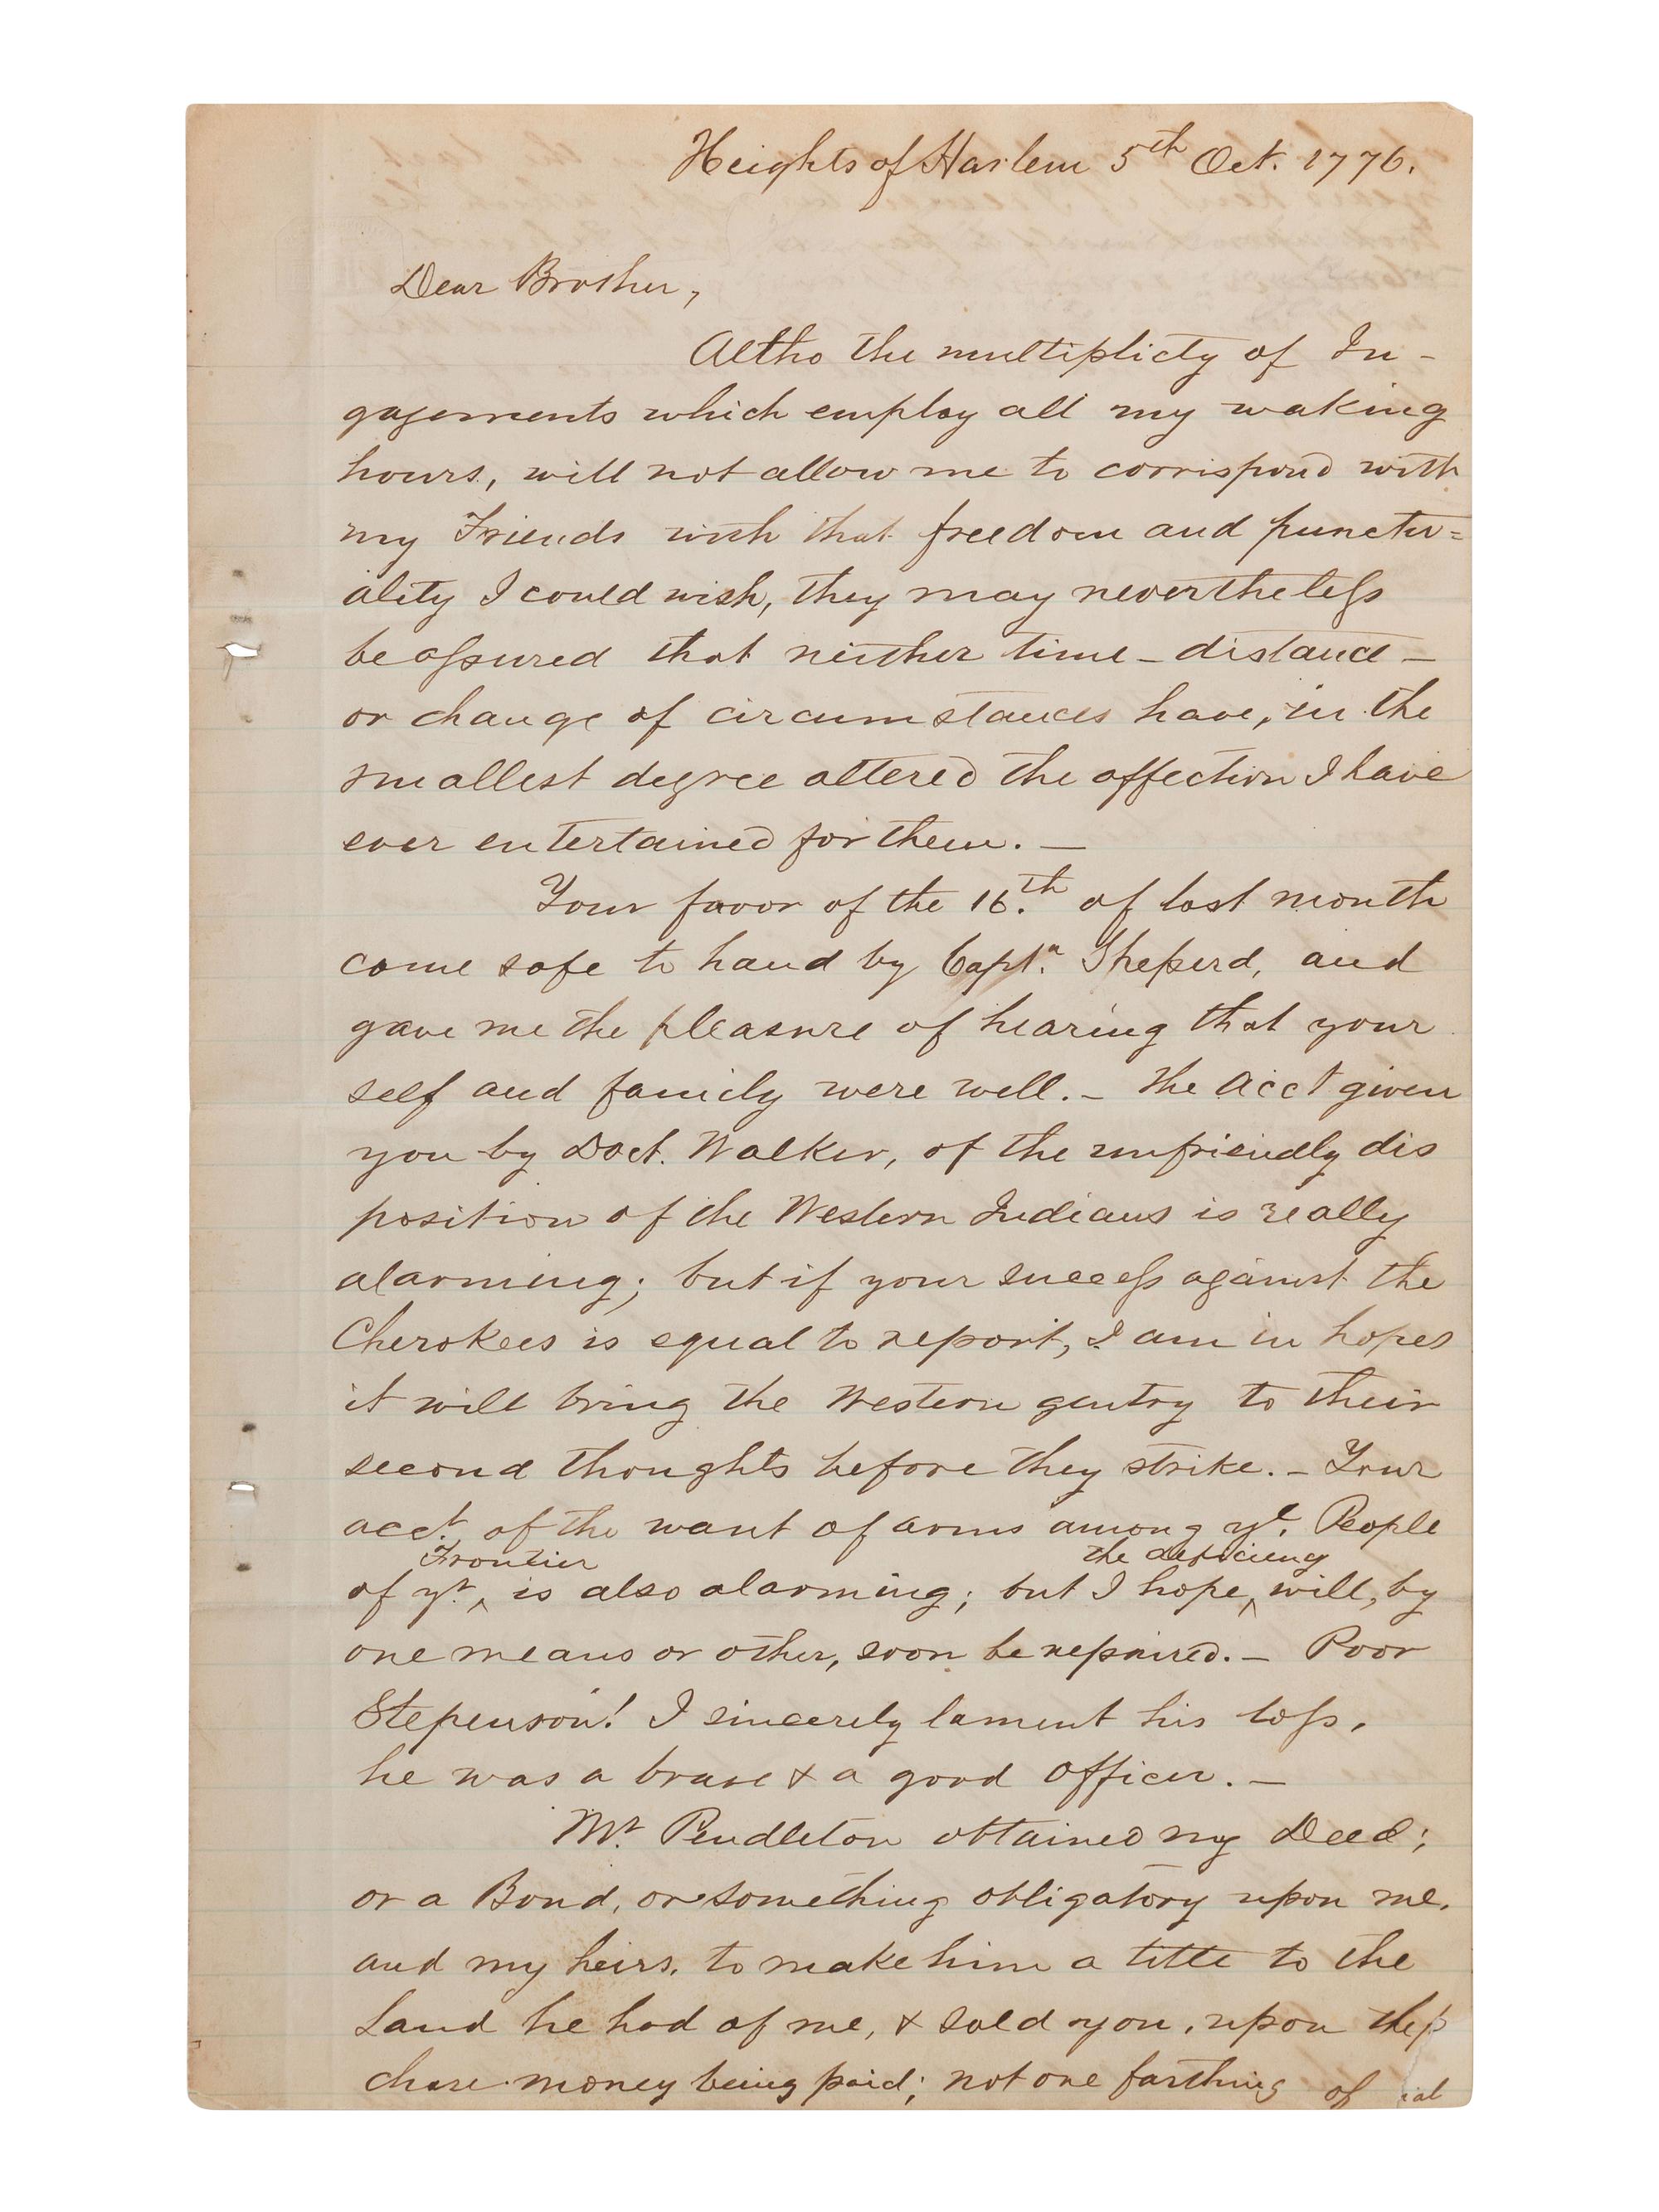 Heights of Harlem 5th Oct. 1776.
Dear Brother,
Altho the multiplicty of In-
gagements which employ all my waking
hours, will not allow me to corrispond with
my Friends with that freedom and punctu=
ality I could wish, they may nevertheless
be assured that neither time - distance -
or change of circumstances have, in the
smallest degree altered the affection I have
ever entertained for them. -
Your favor of the 16.th of last month
came safe to hand by Capt.n Sheperd, and
gave me the pleasure of hearing that your
self and family were well. - The Acct given
you by Doct. Walker, of the unfriendly dis
position of the Western Indians is really
alarming; but if your success against the
Cherokees is equal to report, I am in hopes
it will bring the Western gentry to their
second thoughts before they strike. - Your
acct. of the want of arms among ye. People
Frontier the deficiency
of yr. ^ is also alarming; but I hope, ^ will, by
one means or other, soon be repaired. - Poor
Stepenson! I sincerely lament his loss,
he was a brave & a good officer. -
Mr. Pendleton obtained my Deed;
or a Bond, or something obligatory upon me,
and my heirs, to make him a title to the
Land he had of me, & sold you, upon the p
chase money being paid; not one farthing of